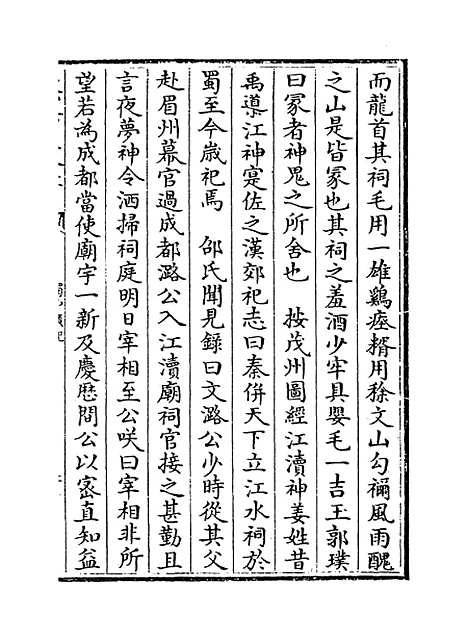 而龍首其祠毛用一雄鷄瘞糈用稌文山勾禰風雨醜
之山是皆冡也其祠之羞酒少牢具嬰毛一吉玉郭璞
曰冡者神鬼之所舍也　按茂州圖經江瀆神姜姓昔
禹導江神寔佐之漢郊祀志曰秦併天下立江水祠於
蜀至今歳祀焉　邵氏聞見錄曰文潞公少時從其父
赴眉州幕官過成都潞公入江瀆廟祠官接之甚勤且
言夜夢神令洒掃祠庭明日宰相至公咲曰宰相非所
望若為成都當使廟宇一新及慶厯間公以宻直知益